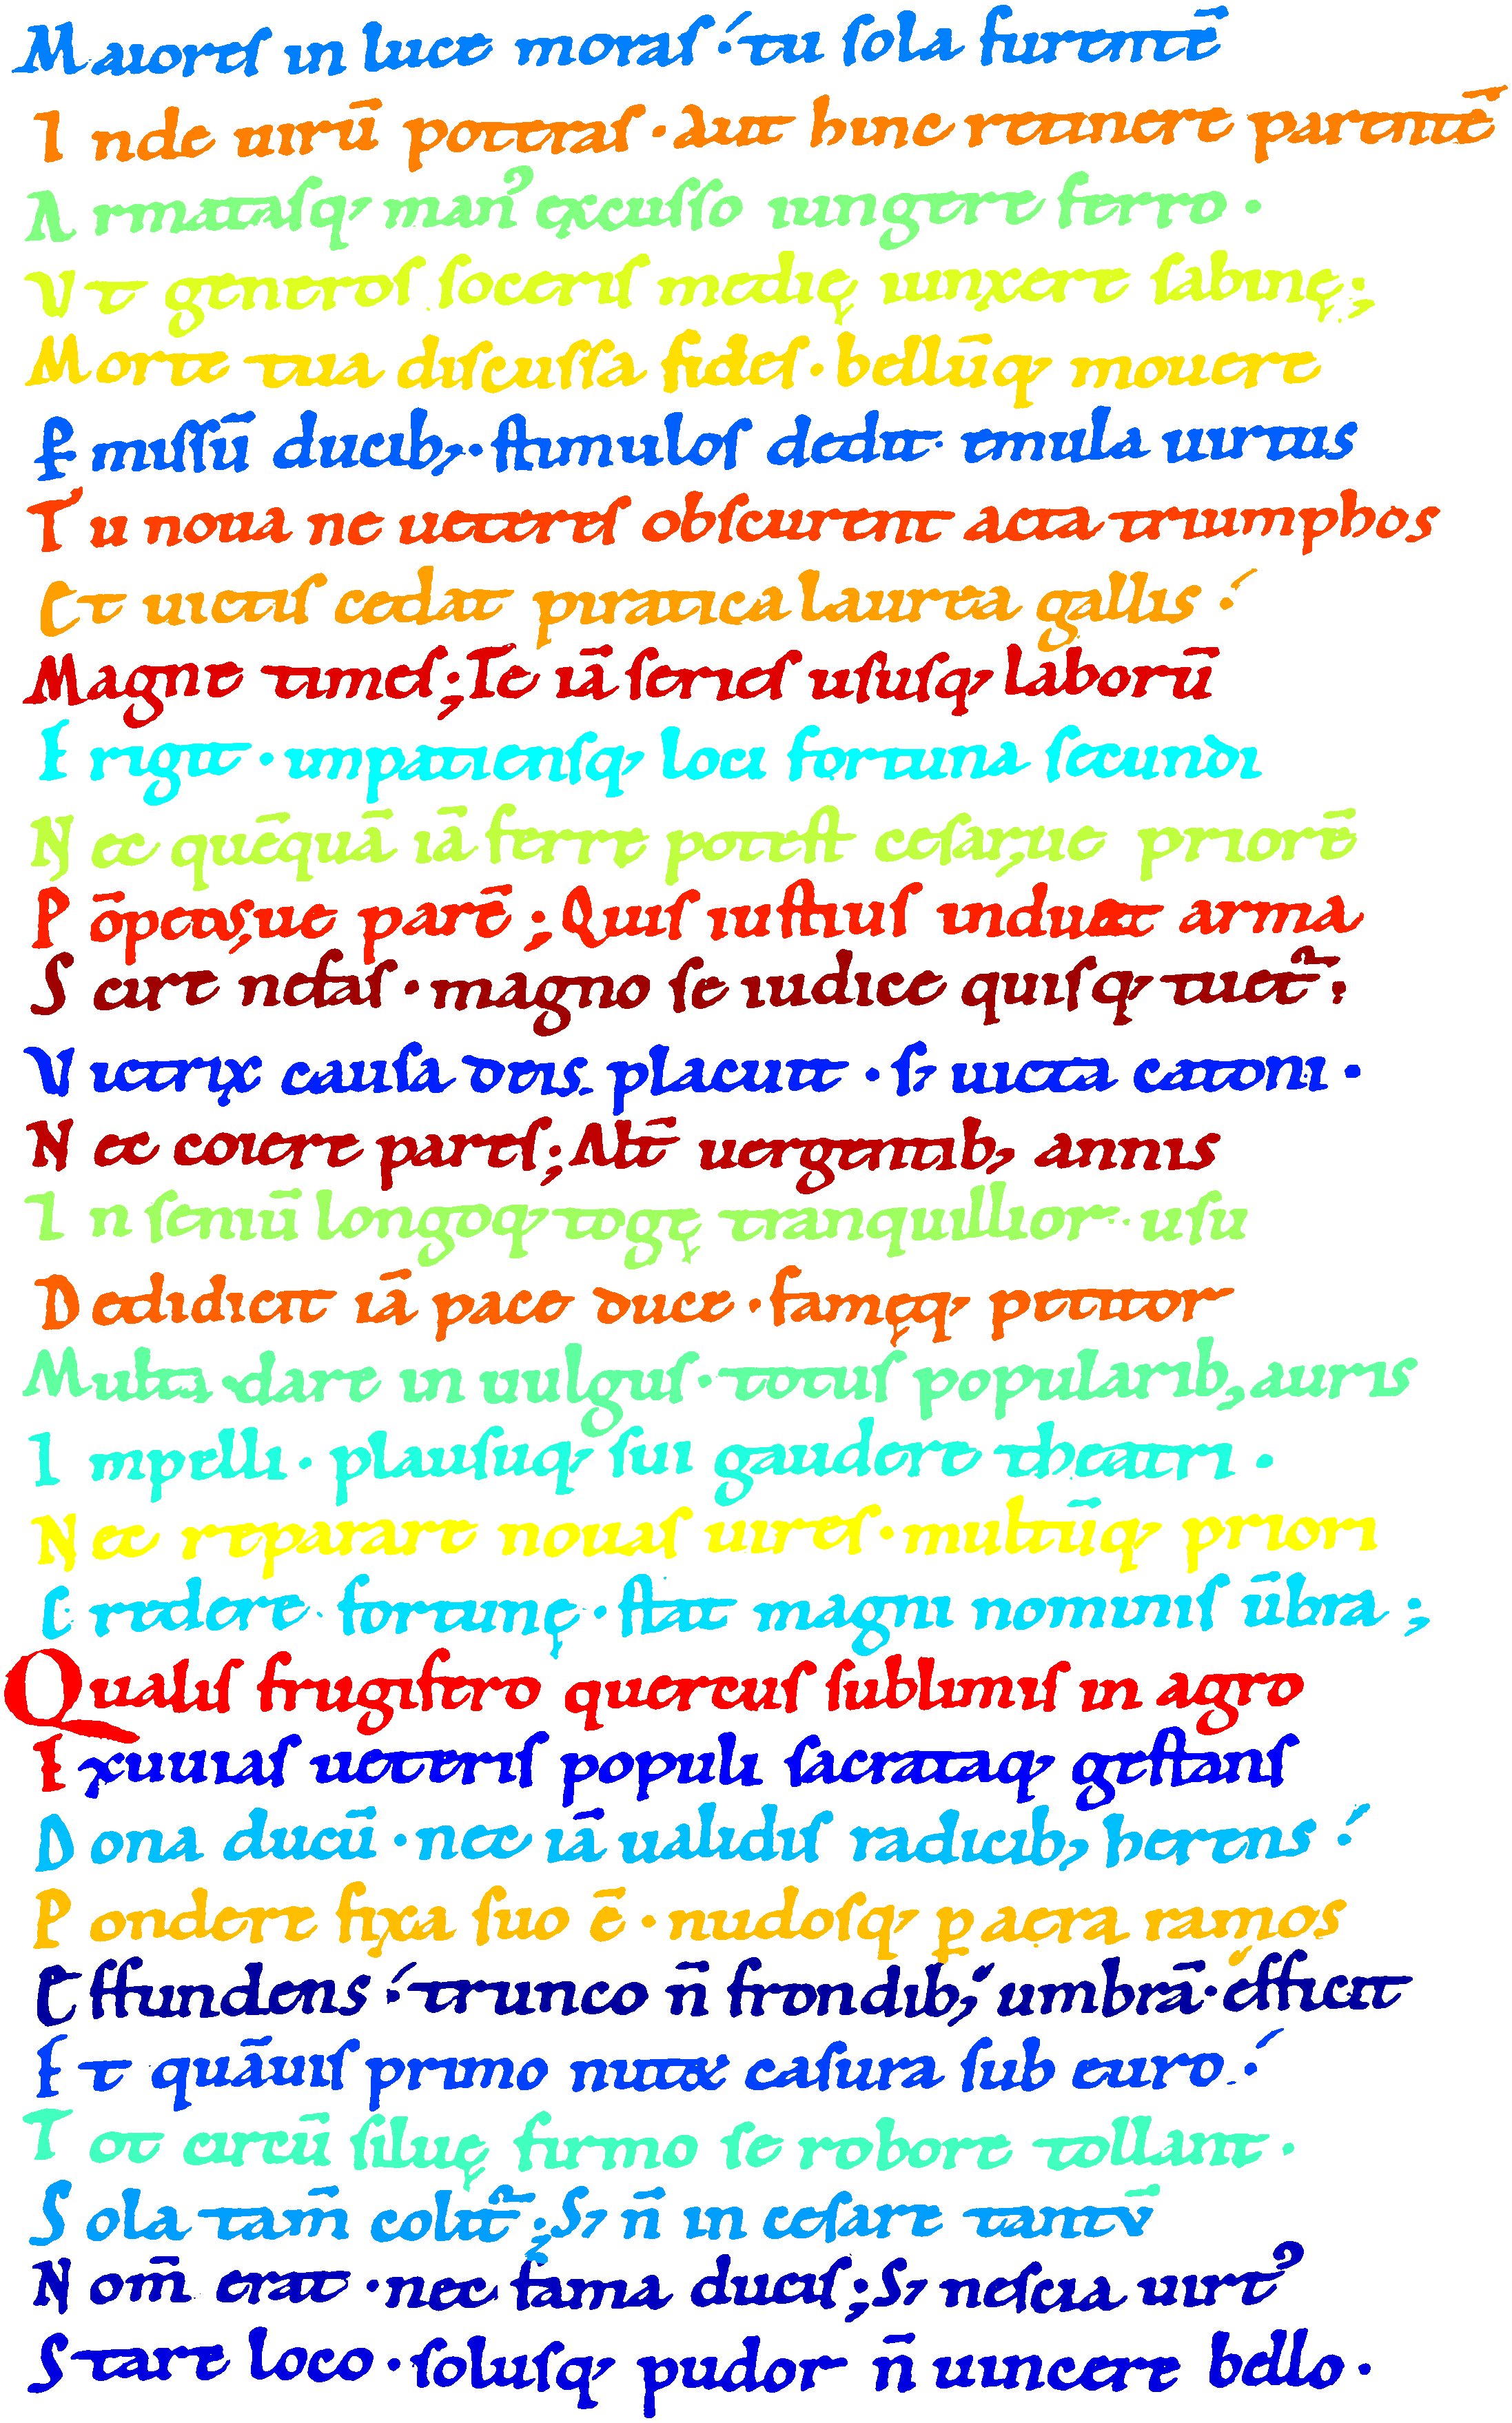 Maioreſ in luce moraſ ؛ tu ſola furentē
Inde uirū poteraſ · aut hinc retinere parentē
Armataſq, man᾽ excuſſo iungere ferro ·
Vt generoſ ſoceriſ medię iunxere ſabinę;
Morte tua diſcuſſa fideſ · bellūq, mouere
ꝑmiſſū ducib, · ſtimuloſ dedit · emula uirtus
Tu noua ne uetereſ obſcurent acta triumphos
Et uictiſ cedat piratica laurea gallis ؛
Magne timeſ; Te iā ſerieſ uſuſq, laborū
Erigit · impatienſq, loci fortuna ſecundi
Nec quēquā iā ferre poteſt ceſar,ue priorē
Pōpeius,ue parē; Quiſ iuſtiuſ induat arma
Scire nefaſ · magno ſe iudice quiſq, tuet᷑ ·
Victrix cauſa deis placuit · ſ, uicta catoni ·
Nec coiere pareſ; Alt̄ uergentib, annis
In ſeniū longoq, togę tranquillior · uſu
Dedidicit iā pace duce · famęq, petitor
Multa dare in uulguſ · totuſ popularib, auris
Impelli · plauſuq, ſui gaudere theatri ·
Nec reparare nouaſ uireſ · multūq, priori
Credere fortunę · ſtat magni nominiſ ūbra;
Qualiſ frugifero quercuſ ſublimiſ in agro
Exuuiaſ ueteriſ populi ſacrataq, geſtanſ
Dona ducū · nec iā ualidiſ radicib, herens ؛
Pondere fixa ſuo ē · nudoſq, ꝑ aera ramos
Effundens ؛ trunco n̄ frondib, umbrā · efficit
Et quāuiſ primo nutet caſura ſub euro ؛
Tot circū ſiluę firmo ſe robore tollant ·
Sola tam̄ colit᷑; S, n̄ in ceſare tantū
Nom̄ erat · nec fama duciſ; S, neſcia uirt᾽
Stare loco · ſoluſq, pudor n̄ uincere bello ·